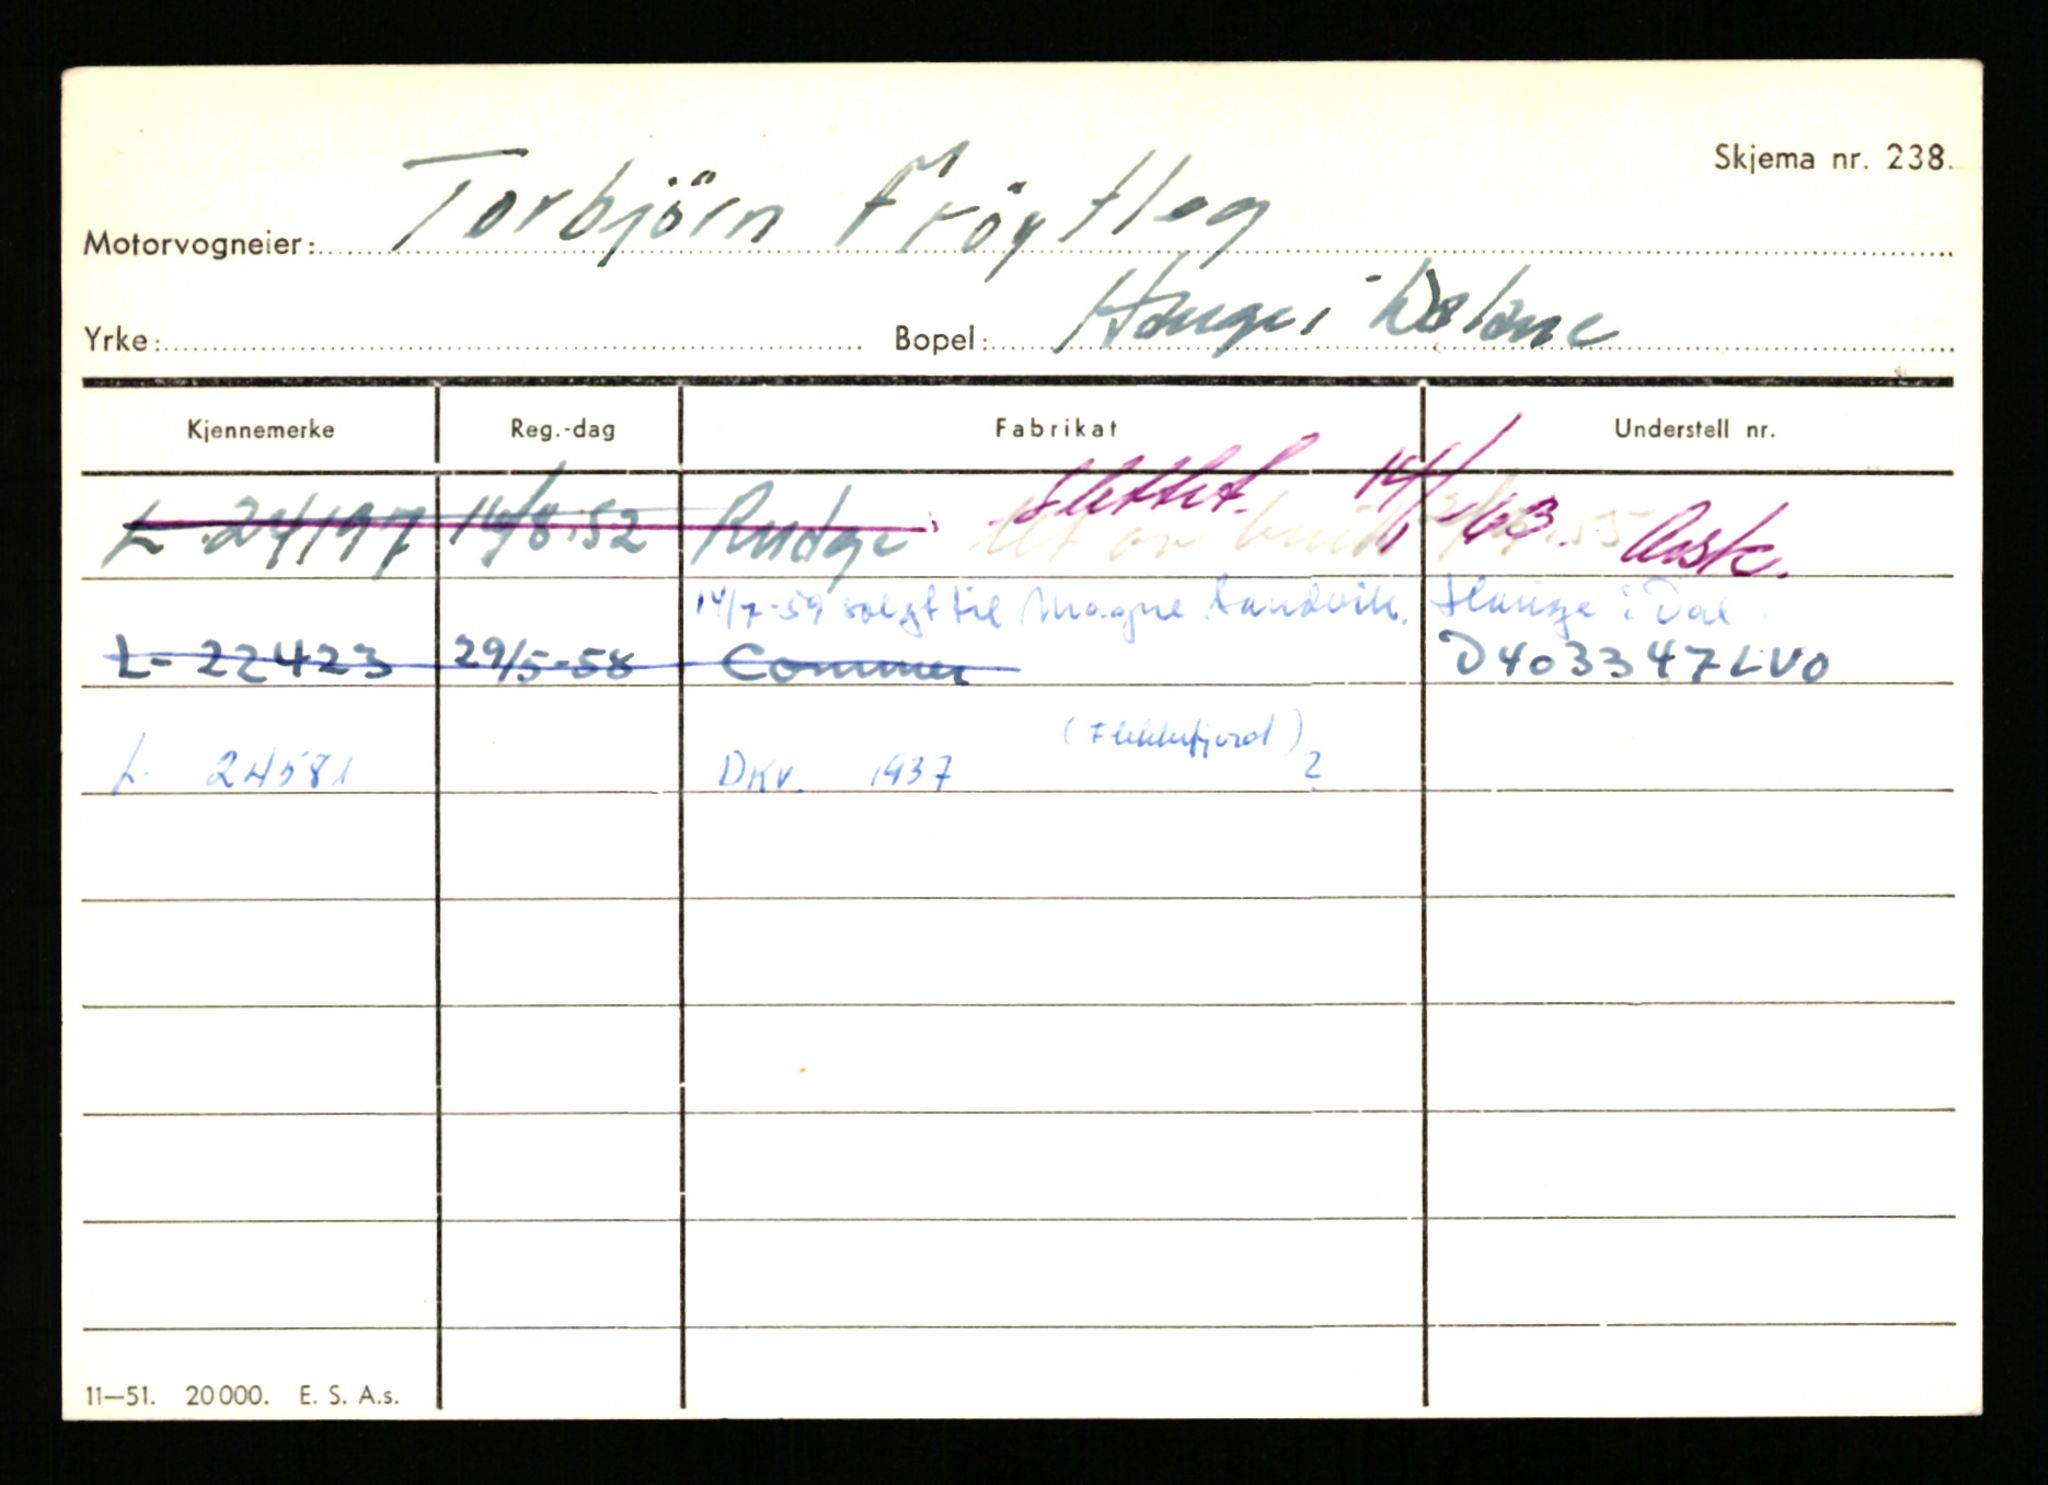 Skjema nr. 238.
Motorvogneier: Torbjörn Fröytlog
Yrke: Bopel: Hauge i Dalane
Kjennemerke Reg.-dag Fabrikat Understell nr.
L 24197 14/8.52 Rudge Slettet. 63. Ut av bruk 55
14/7-59 solgt til Magne Sandvik. Hauge i Dal
L- 22423 29/5-58 Commer D403347LVO
(Flekkefjord)
L. 24581 DKV. 1937 ?
11—51. 20000. E. S. A.s.